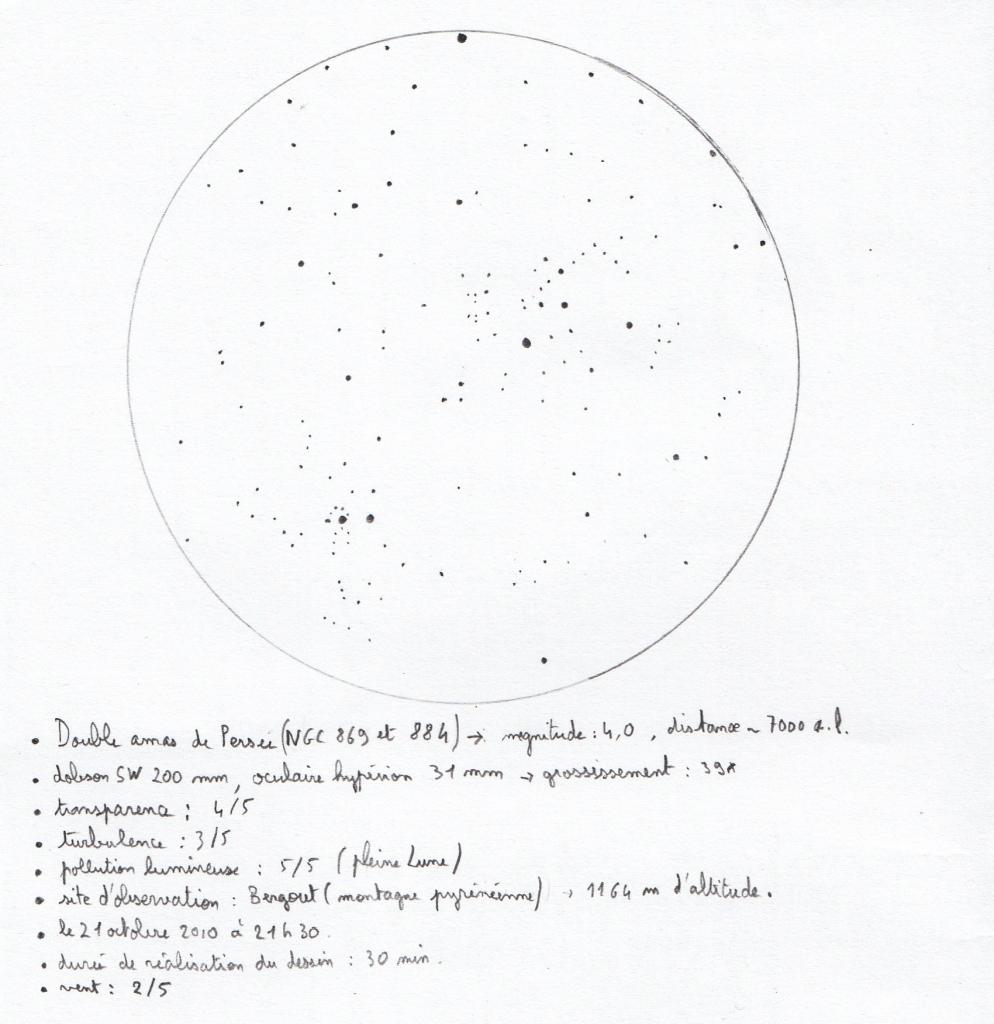 • Double amas de Persée (NGC 869 et 884) → magnitude : 4,0 , distance ~ 7000 a.l.
• dobson SW 200 mm, oculaire hypérion 31 mm → grossissement : 39x
• transparence : 4/5
• turbulence : 3/5
• pollution lumineuse : 5/5 (pleine Lune)
• site d'observation : (montagne pyrénéenne) → 1164 m d'altitude.
• le 21 octobre 2010 à 21h30.
• durée de réalisation du dessin : 30 min.
• vent : 2/5